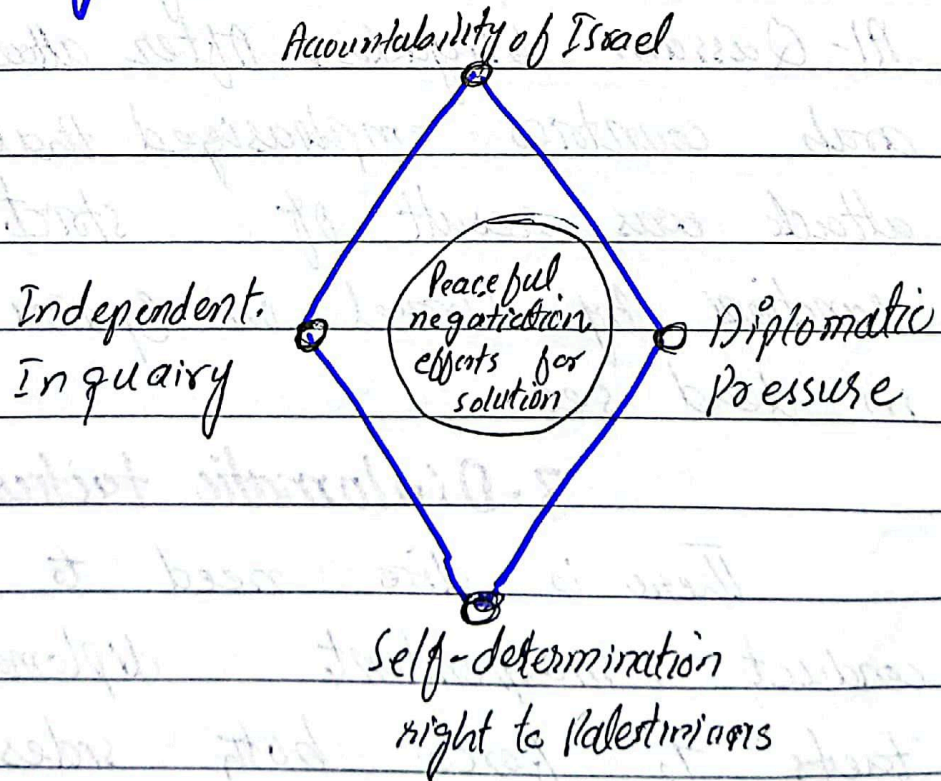 Accountability of Israel
Independent.
Inquairy
Peaceful
negatiation
efforts for
solution
Diplomatic
Pressure
Self-determination
right to Palestinians